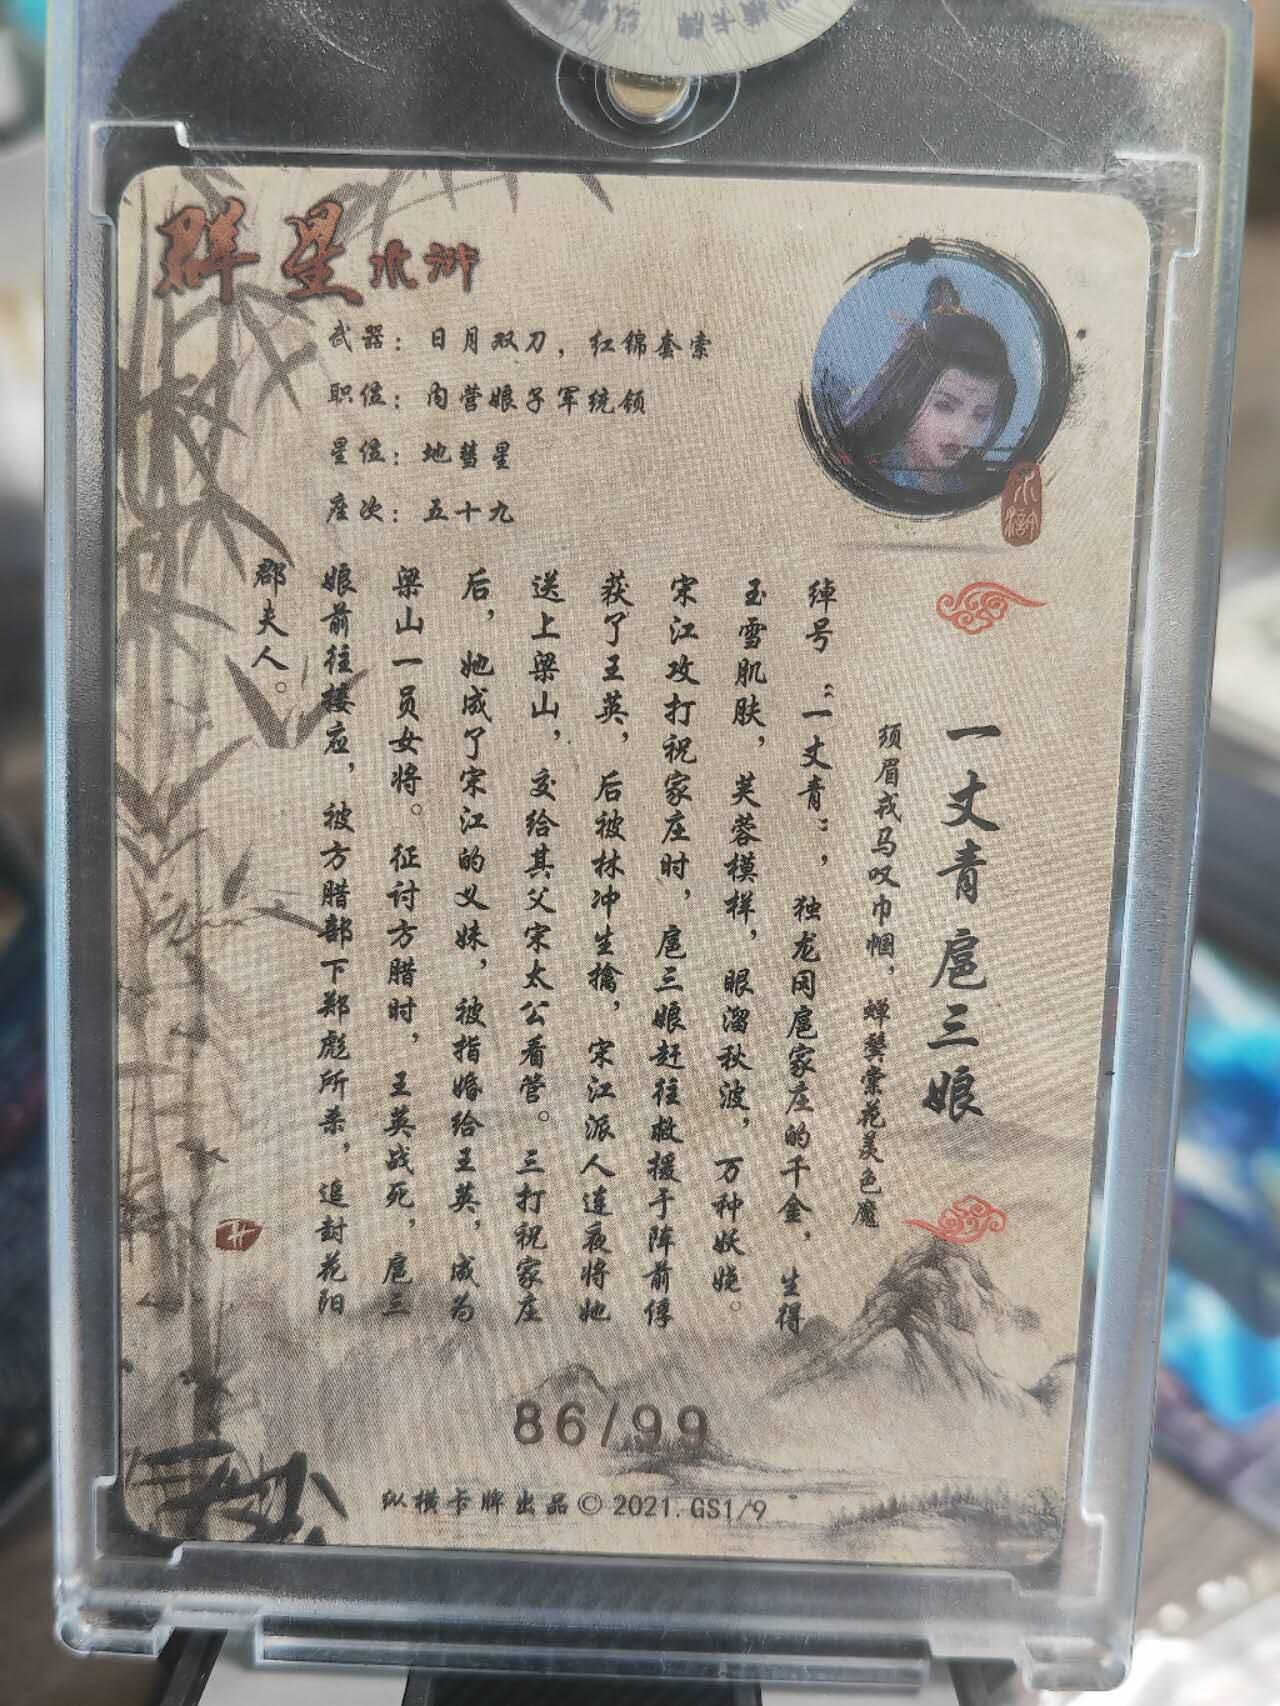 纵横卡牌
群星水浒
武器：日月双刀，红锦套索
职位：内营娘子军统领
星位：地彗星
座次：五十九
水浒
一丈青扈三娘
须眉戎马叹巾帼，蝉鬓棠花美色魔
绰号“一丈青”，独龙冈扈家庄的千金，生得
玉雪肌肤，芙蓉模样，眼溜秋波，万种妖娆。
宋江攻打祝家庄时，扈三娘赶往救援于阵前俘
获了王英，后被林冲生擒，宋江派人连夜将她
送上梁山，交给其父宋太公看管。三打祝家庄
后，她成了宋江的义妹，被指婚给王英，成为
梁山一员女将。征讨方腊时，王英战死，扈三
娘前往接应，被方腊部下郑彪所杀，追封花阳
郡夫人。
86/99
纵横卡牌出品© 2021.GS1/9